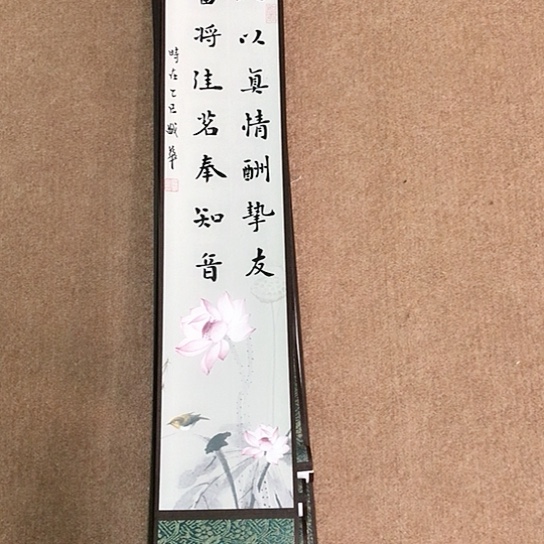 以真情酬摯友
將佳茗奉知音
時在乙巳